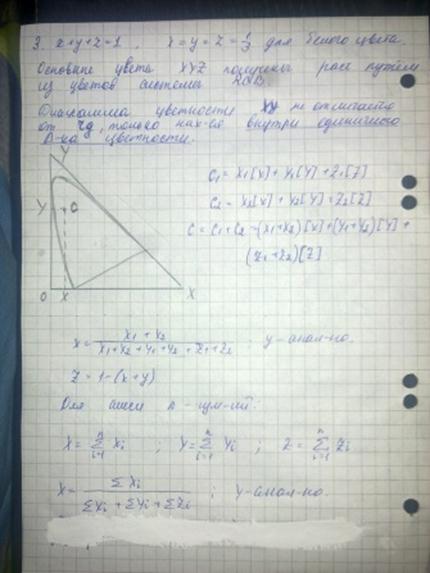 3. x+y+z=1, x=y=z=1/3 для белого цвета.
Основные цвета XYZ получены расч путём
из цветов системы RGB.
Диаграмма цветности xy не отличается
от rg, только нах-ся внутри единичного
Δ-ка цветности.
Y
C₁ = X₁[X] + Y₁[Y] + Z₁[Z]
Y C
C₂ = X₂[X] + Y₂[Y] + Z₂[Z]
C = C₁ + C₂ = (X₁+X₂)[X] + (Y₁+Y₂)[Y] +
(Z₁+Z₂)[Z]
O X X
x = X₁ + X₂ / X₁+X₂+Y₁+Y₂+Z₁+Z₂ ; y-анал-но.
Z = 1-(x+y)
Для смеси
X = Σ Xi ; Y = Σ Yi ; Z = Σ Zi
x = ΣXi / ΣXi + ΣYi + ΣZi ; y-анал-но.